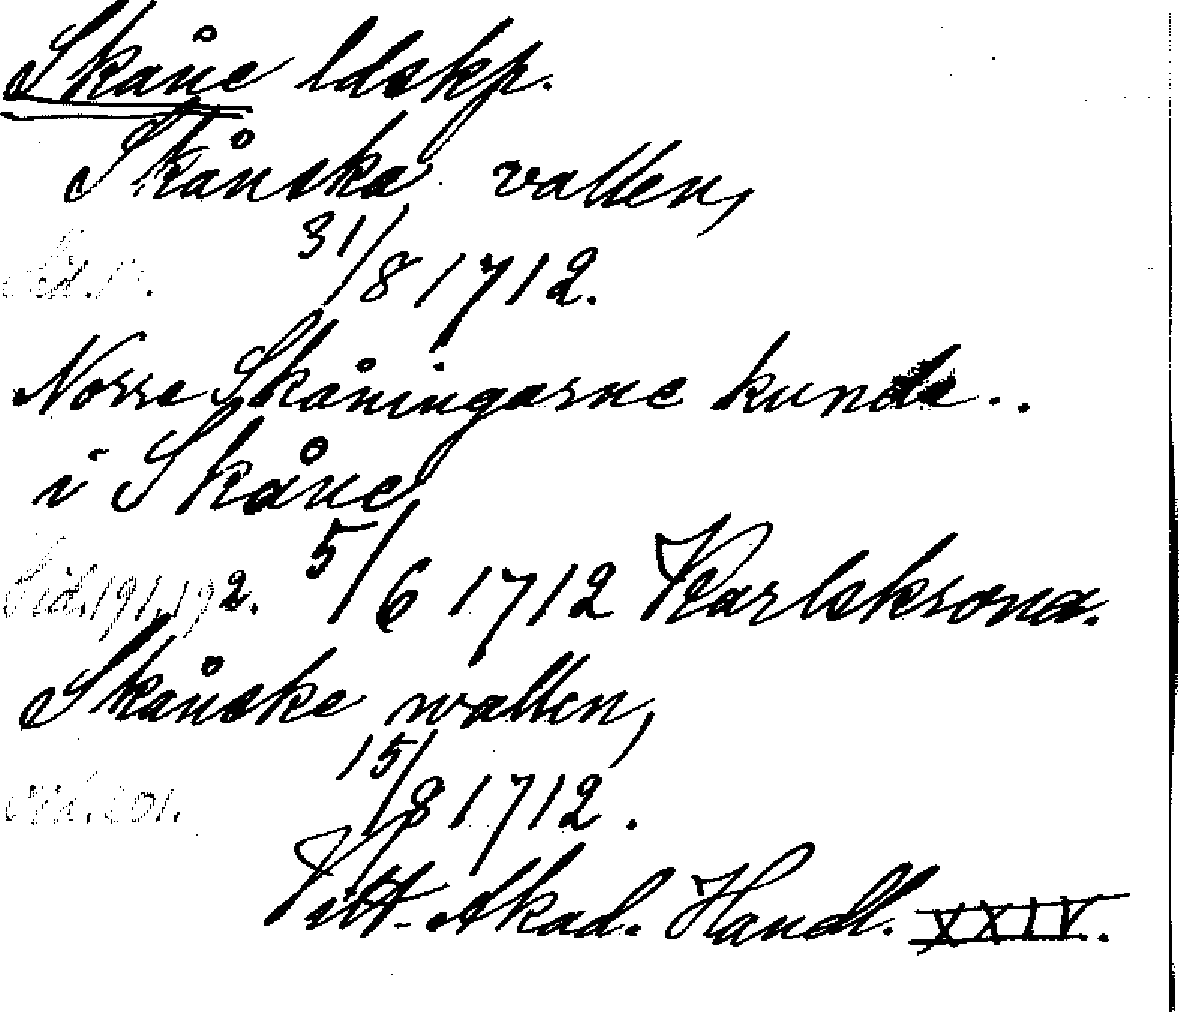 Skåne ldskp.
Skånska vallen,
31/8 1712.
Norra Skåningarne kunde..
i Skåne
Sid. 191, 192. 5/6 1712 Karlskrona.
Skånske wallen,
sid. 201. 15/8 1712.
Vitt. Akad. Handl. XXIV.